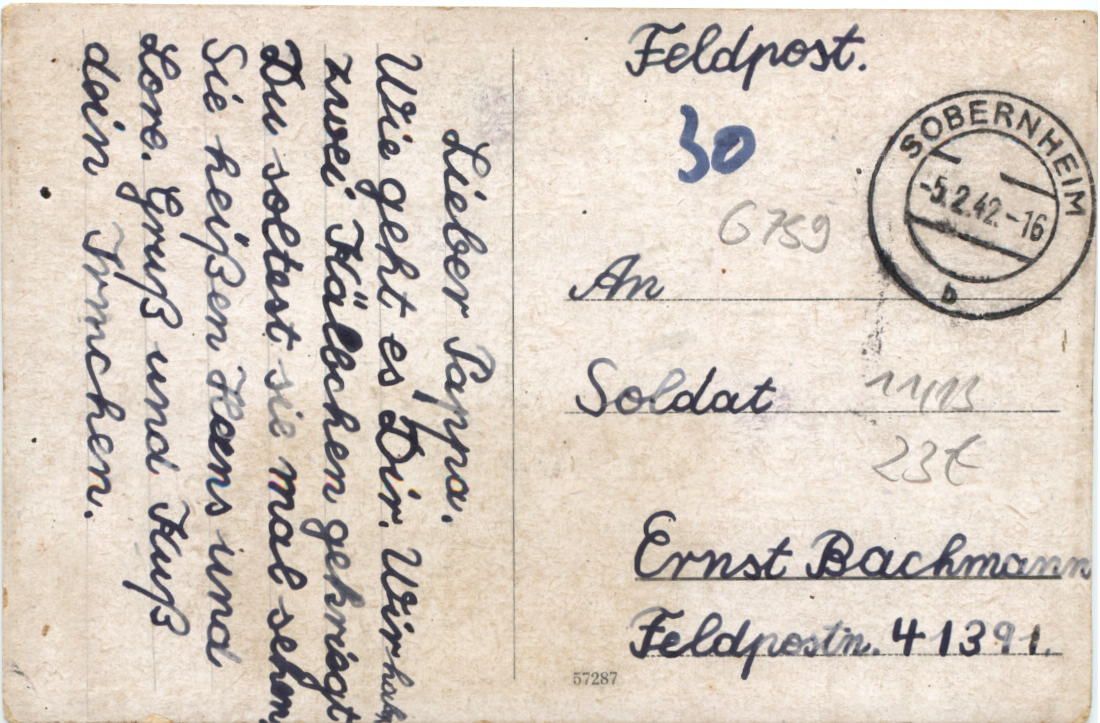 Feldpost.
30
6759
SOBERNHEIM
-5.2.42.-16
b
An
Soldat
23
Ernst Bachmann
Feldpostn. 41391.
57287
Lieber Pappa.
Wie geht es Dir. Wir haben
zwei Kälbchen gekriegt
Du soltest sie mal sehen,
Sie heißen Heens und
Lore. Gruß und Kuß
dein Irmchen.